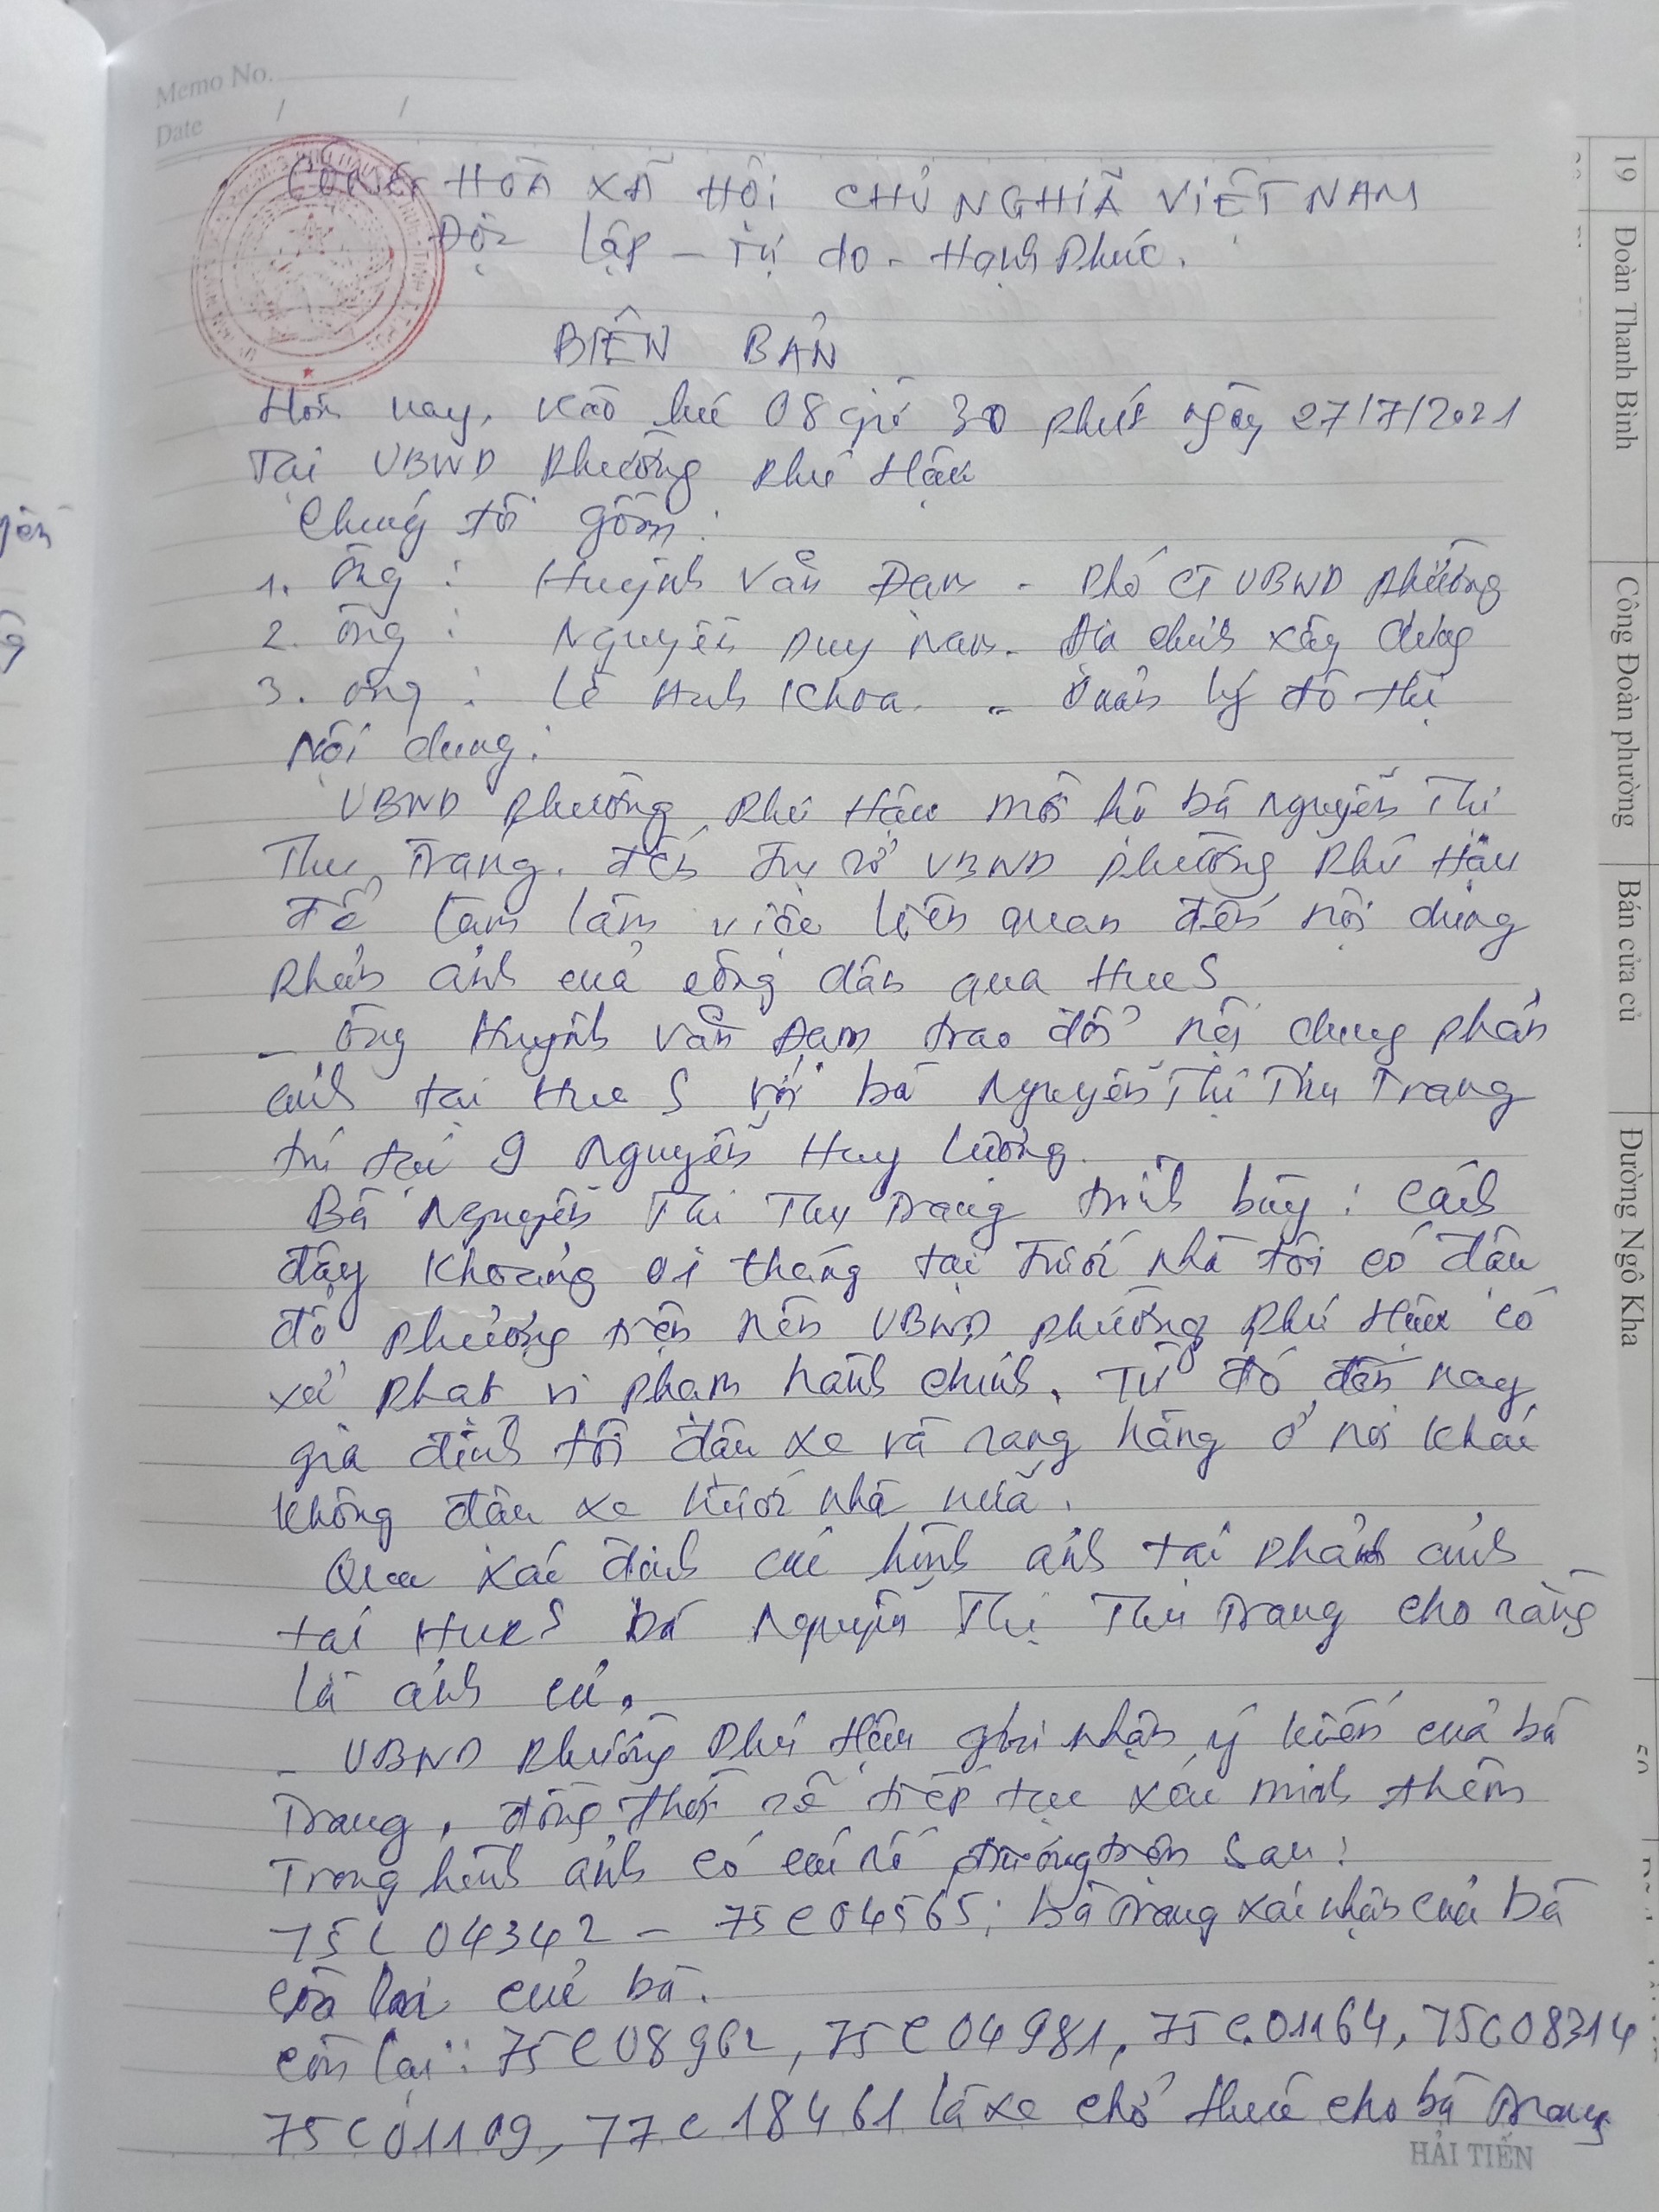 Memo No.
Date / /
CỘNG HÒA XÃ HỘI CHỦ NGHĨA VIỆT NAM
Độc lập - Tự do - Hạnh Phúc.
BIÊN BẢN
Hôm nay, vào lúc 08 giờ 30 phút ngày 27/7/2021
Tại UBND Phường Phú Hậu
Chúng tôi gồm:
1. Ông : Huỳnh Văn Đạm - Phó CT UBND phường
2. Ông : Nguyễn Duy Nam - Địa chính xây dựng
3. Ông : Lê Anh Khoa - Quản lý đô thị
Nội dung:
UBND phường Phú Hậu mời hộ bà Nguyễn Thị
Thu Trang. đến trụ sở UBND phường Phú Hậu
để làm việc liên quan đến nội dung
phản ánh của công dân qua HueS
- Ông Huỳnh Văn Đạm trao đổi nội dung phản
ánh tại HueS với bà Nguyễn Thị Thu Trang
trú tại 9 Nguyễn Huy Lượng.
Bà Nguyễn Thị Thu Trang trình bày: Cách
đây khoảng 01 tháng tại trước nhà tôi có đậu
đỗ phương tiện nên UBND phường Phú Hậu có
xử phạt vi phạm hành chính. Từ đó đến nay
gia đình tôi đậu xe và sang hàng ở nơi khác
không đậu xe trước nhà nữa.
Qua xác định các hình ảnh tại phản ánh
tại HueS bà Nguyễn Thị Thu Trang cho rằng
là ảnh cũ.
- UBND Phường Phú Hậu ghi nhận ý kiến của bà
Trang, đồng thời sẽ tiếp tục xác minh thêm
Trong hình ảnh có các số sau:
75C 04342 - 75C04565; bà Trang xác nhận của bà
còn lại của bà.
Còn lại: 75C08962, 75C04981, 75C.01164, 75C08314
75C01109, 77C18461 là xe chở thuê cho bà Trang
HẢI TIẾN
19
Đoàn Thanh Bình
Công Đoàn phường
Bán cửa củ
Đường Ngô Kha